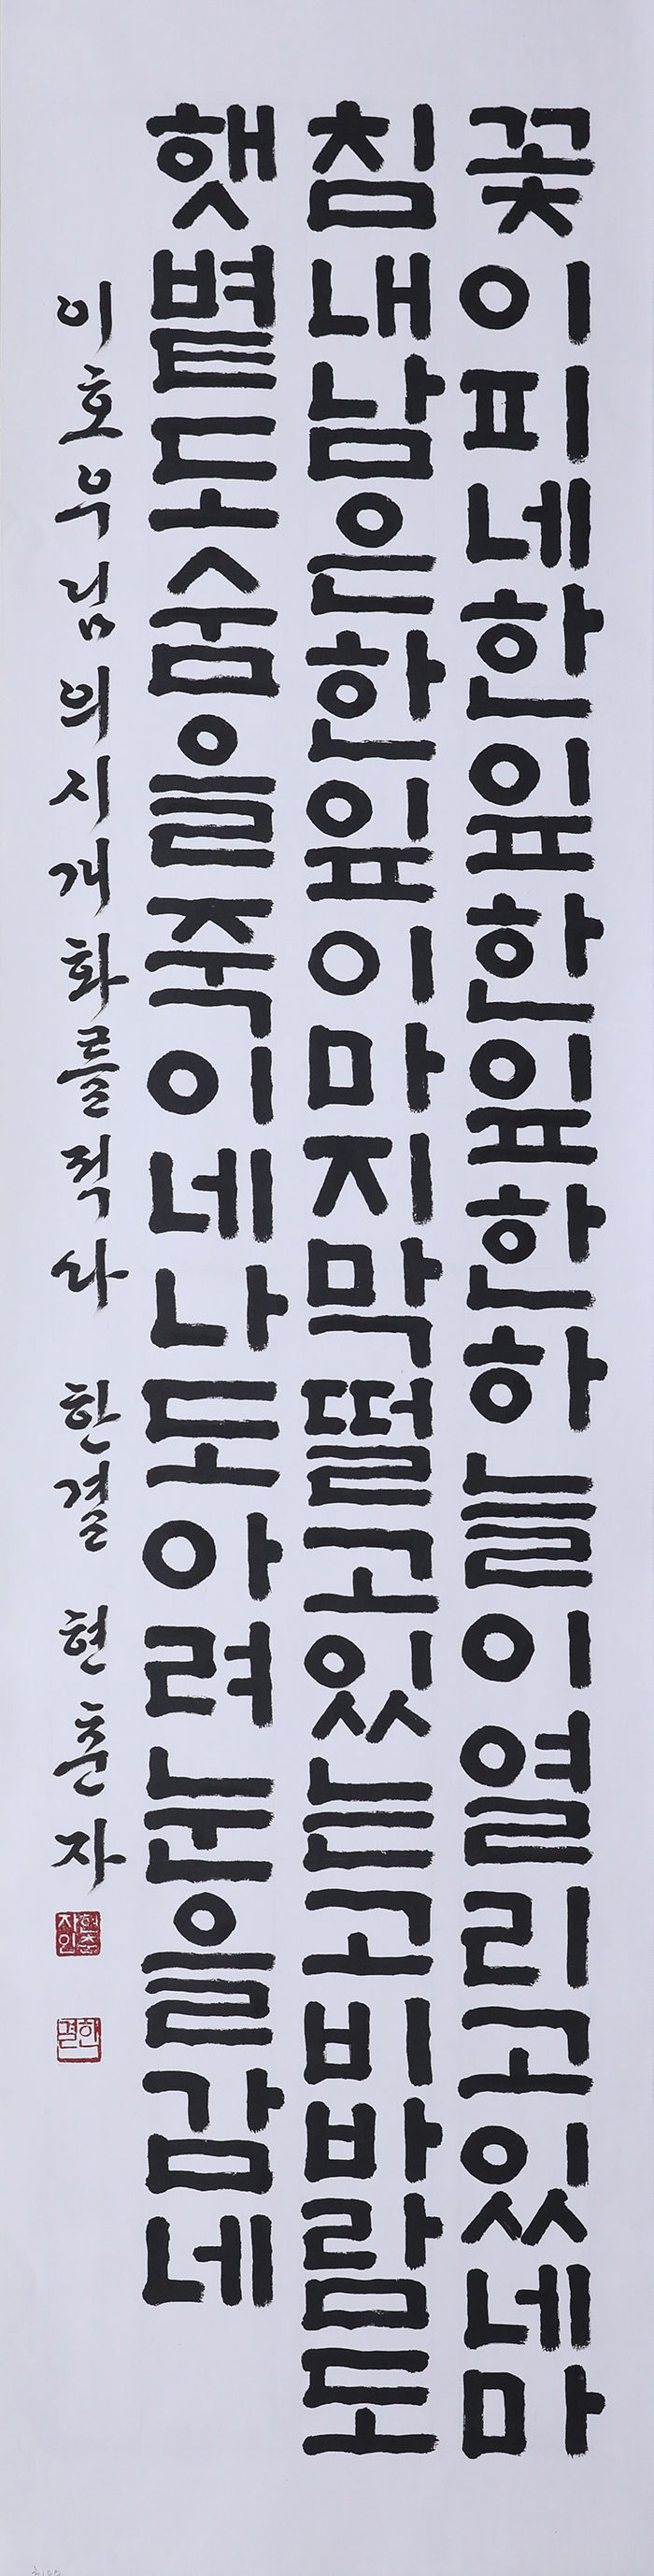 꽃이피네한잎한잎한하늘이열리고있네마
침내남은한잎이마지막떨고있는고비바람도
햇볕도숨을죽이네나도아려눈을감네
이호우님의시개화를적다 한결 현춘자
현춘자인
한결